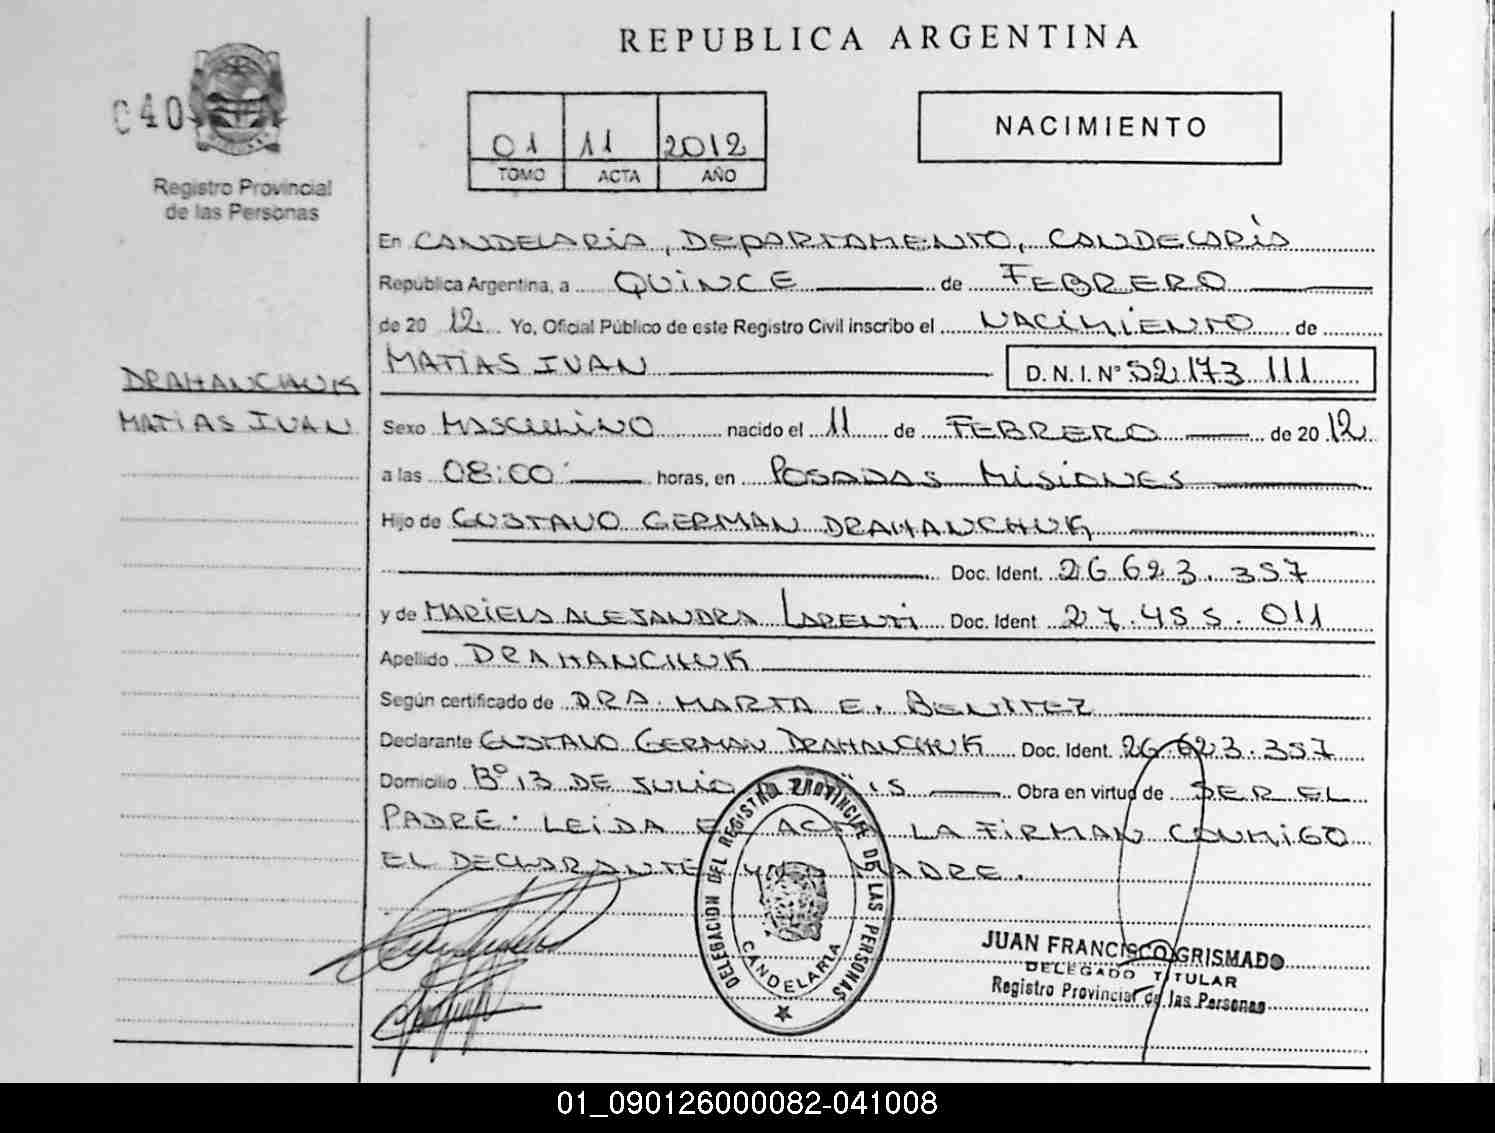 REPUBLICA ARGENTINA
040
Registro Provincial
de las Personas
01 11 2012
TOMO ACTA AÑO
NACIMIENTO
En CANDELARIA, DEPARTAMENTO, CANDELARIA
Republica Argentina, a QUINCE de FEBRERO
de 20 12 Yo, Oficial Público de este Registro Civil inscribo el NACIMIENTO de
MATIAS IVAN D.N.I. Nº 52.173.111
DRAHANCHUK
MATIAS IVAN
Sexo MASCULINO nacido el 11 de FEBRERO de 20 12
a las 08:00 horas, en POSADAS MISIONES
Hijo de GUSTAVO GERMAN DRAHANCHUK
Doc. Ident. 26.623.357
y de MARIELA ALEJANDRA LARENTI Doc. Ident 27.455.011
Apellido DRAHANCHUK
Según certificado de DRA. MARTA E. BENITEZ
Declarante GUSTAVO GERMAN DRAHANCHUK Doc. Ident. 26.623.357
Domicilio Bº 13 DE JULIO Obra en virtud de SER EL
PADRE. LEIDA EL ACTA LA FIRMAN CONMIGO
EL DECLARANTE Y LA MADRE.
DELEGACION DEL REGISTRO PROVINCIAL DE LAS PERSONAS
CANDELARIA
JUAN FRANCISCO GRISMADO
DELEGADO TITULAR
Registro Provincial de las Personas
01_090126000082-041008